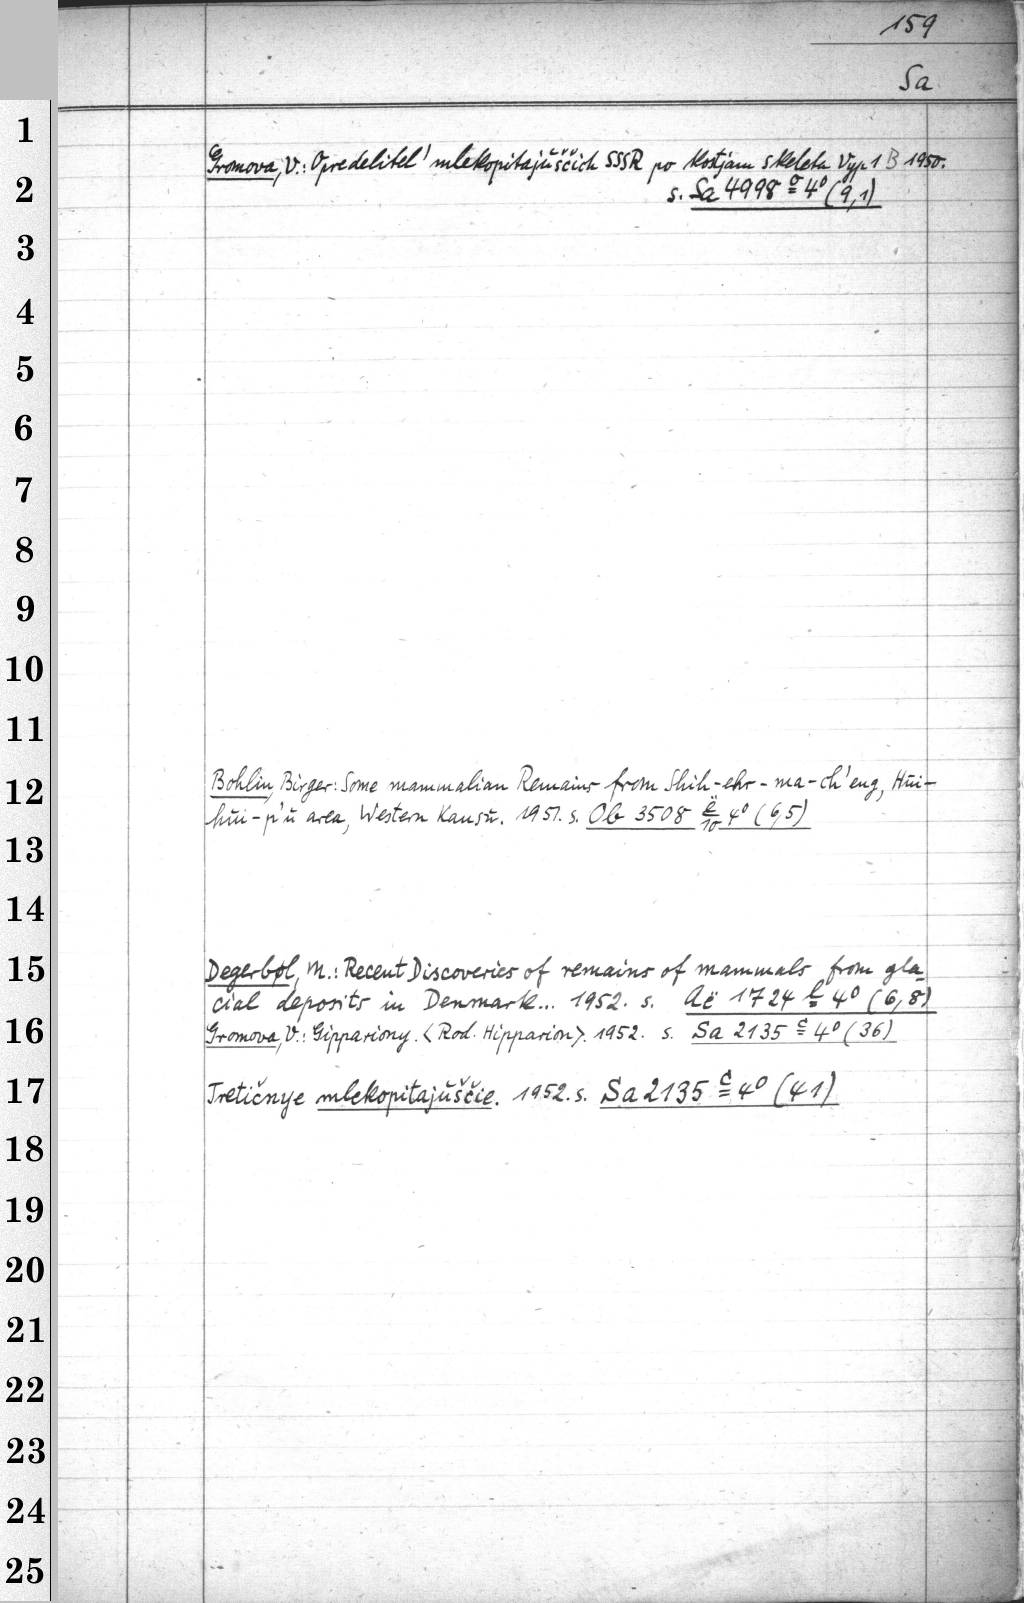 159
Sa
1
Gromova, V.: Opredelitel' mlekopitajuščich SSSR po kostjam skeleta Vyp 1 B 1950.
2
s. Sa 4998 4° (9,1)
3
4
5
6
7
8
9
10
11
12
Bohlin, Birger: Some mammalian Remains from Shih-ehr-ma-ch'eng, Hui-
hui-p'u area, Western Kansu. 1951. s. Ob 3508 ë/10 4° (6,5)
13
14
15
Degerbøl, M.: Recent Discoveries of remains of mammals from gla-
cial deposits in Denmark... 1952. s. Aë 1724 b 4° (6,8)
16
Gromova, V.: Gippariony. <Rod. Hipparion>. 1952. s. Sa 2135 c 4° (36)
17
Tretičnye mlekopitajuščie. 1952. s. Sa 2135 c 4° (41)
18
19
20
21
22
23
24
25